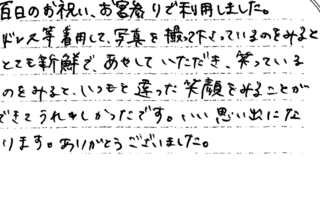 百日のお祝い、お宮参りで利用しました。
ドレス等着用して、写真を撮って下さっているのをみると
とても新鮮で、あせしていただき、笑っている
のをみると、いつもと違った笑顔をみることが
できてうれしかったです。いい思い出にな
ります。ありがとうございました。